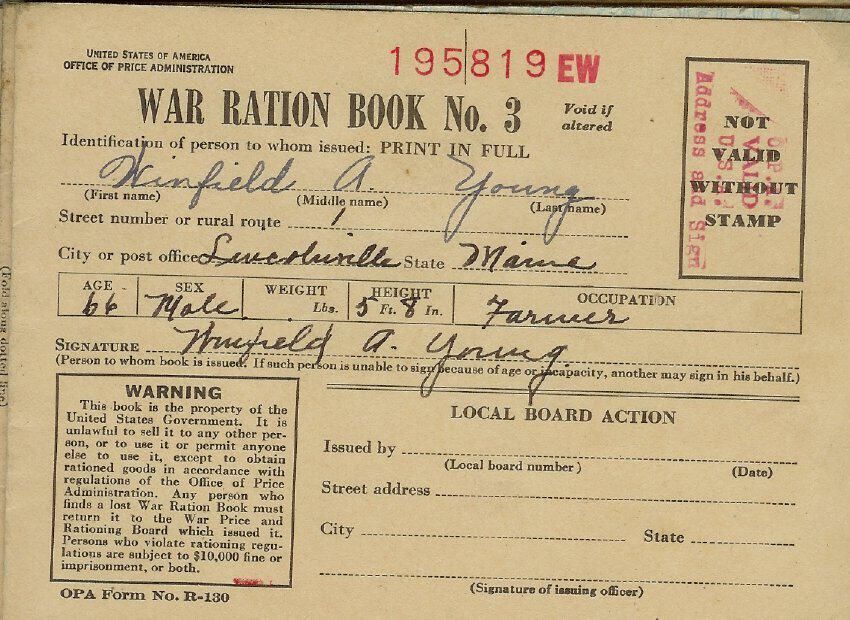 UNITED STATES OF AMERICA
OFFICE OF PRICE ADMINISTRATION
195819 EW
WAR RATION BOOK No. 3
Void if
altered
Identification of person to whom issued: PRINT IN FULL
Winfield A. Young
(First name) (Middle name) (Last name)
Street number or rural route 1
City or post office Lincolnville State Maine
AGE SEX WEIGHT HEIGHT OCCUPATION
66 Male Lbs. 5 Ft. 8 In. Farmer
SIGNATURE Winfield A. Young
(Person to whom book is issued. If such person is unable to sign because of age or incapacity, another may sign in his behalf.)
NOT
VALID
WITHOUT
STAMP
VALID
Address and Sign
WARNING
This book is the property of the
United States Government. It is
unlawful to sell it to any other per-
son, or to use it or permit anyone
else to use it, except to obtain
rationed goods in accordance with
regulations of the Office of Price
Administration. Any person who
finds a lost War Ration Book must
return it to the War Price and
Rationing Board which issued it.
Persons who violate rationing regu-
lations are subject to $10,000 fine or
imprisonment, or both.
LOCAL BOARD ACTION
Issued by
(Local board number) (Date)
Street address
City State
(Signature of issuing officer)
OPA Form No. R-130
(Fold along dotted line)